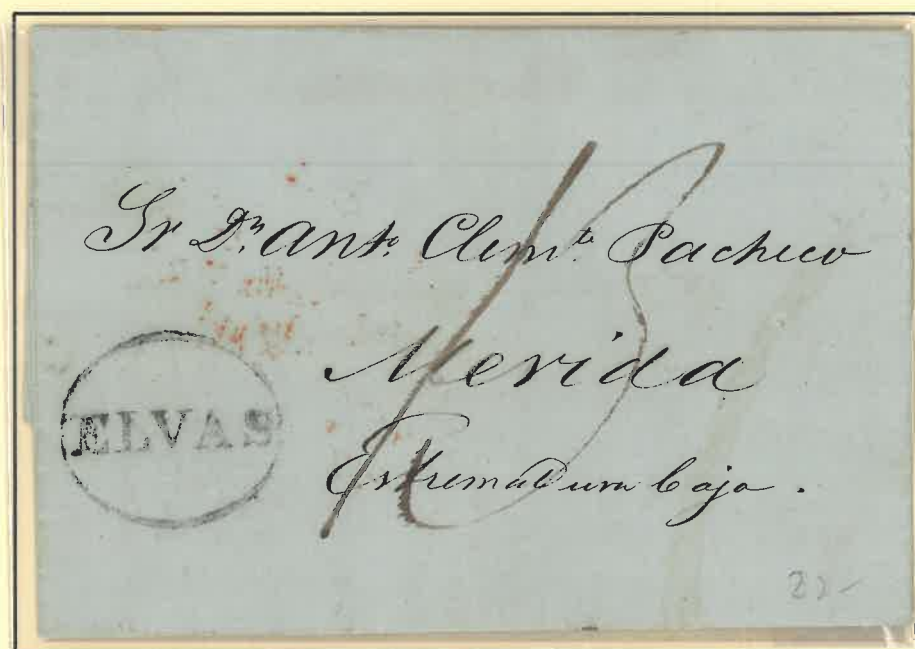 Sr Dⁿ Antº Clemᵗᵉ Pacheco
Merida
Estremadura baja.
ELVAS
13